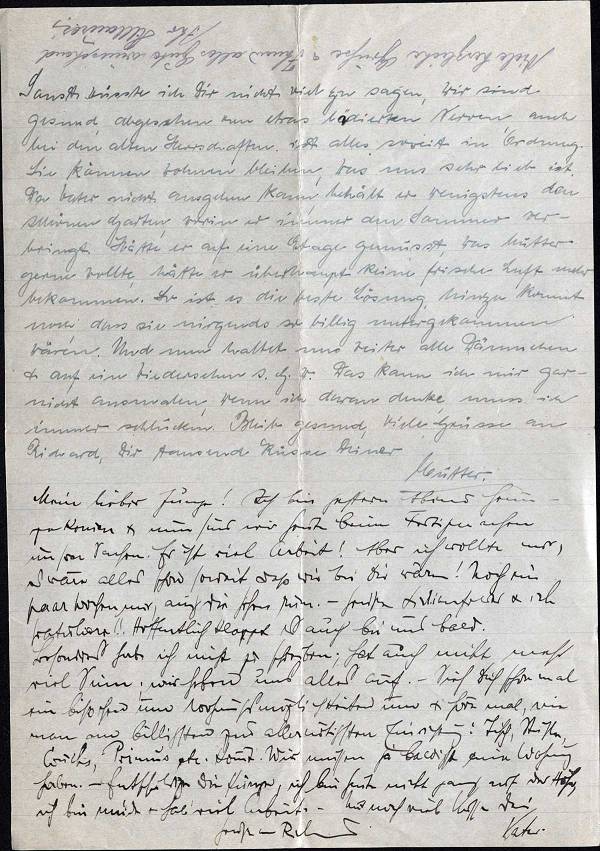 Viele herzliche Grüsse u. Ihnen alles Gute wünschend
Ihr
Sonst wüsste ich Dir nicht viel zu sagen, wir sind
gesund, abgesehen von etwas lädierten Nerven, auch
bei den alten Herrschaften ist alles soweit in Ordnung.
Sie können wohnen bleiben, was uns sehr lieb ist.
Da Vater nicht ausgehen kann, behält er wenigstens den
schönen Garten, worin er immer den Sommer ver-
bringt. Hätte er auf eine Etage gemusst, was Mutter
gern wollte, hätte er überhaupt keine frische Luft mehr
bekommen. So ist es die beste Lösung, hinzu kommt
noch dass sie nirgends so billig untergekommen
wären. Und nun haltet uns weiter alle Däumchen
& auf ein Wiedersehen s. G. w. Das kann ich mir gar-
nicht ausmalen, wenn ich daran denke, muss ich
immer schlucken. Bleib gesund, viele Grüsse an
Richard, Dir tausend Küsse Deiner
Mutter.
Mein lieber Junge! Ich bin gestern Abend heim-
gekommen & nun sind wir heute beim Fertigmachen
unserer Sachen. Es ist viel Arbeit! Aber ich wollte nur,
es wäre alles schon soweit dass wir bei Dir wären! Noch ein
paar Wochen nur, auch die gehen rum. –
Hoffentlich klappt es auch bei uns bald.
Besonders habe ich nicht zu schreiben, hat auch nicht mehr
viel Sinn, wir heben uns alles auf. – Sieh Dich schon mal
ein bischen um Wohnungsmöglichkeiten um & hör mal, wie
man am billigsten zur allernötigsten Einrichtung: Tisch, Stühle,
Couchs, Primus etc. kommt. Wir müssen ja baldigst eine Wohnung
haben. – Entschuldige die Kürze, ich bin heute nicht ganz auf der Höhe,
ich bin müde & hab viel Arbeit. – noch viel Küsse Dein
Vater.